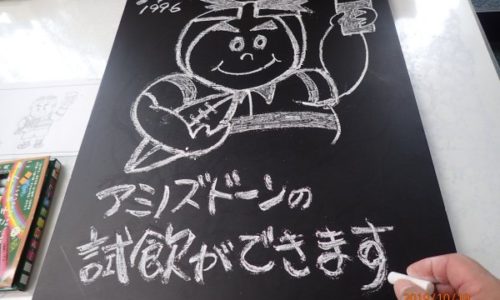 1996
アミノズドーンの
試飲ができます